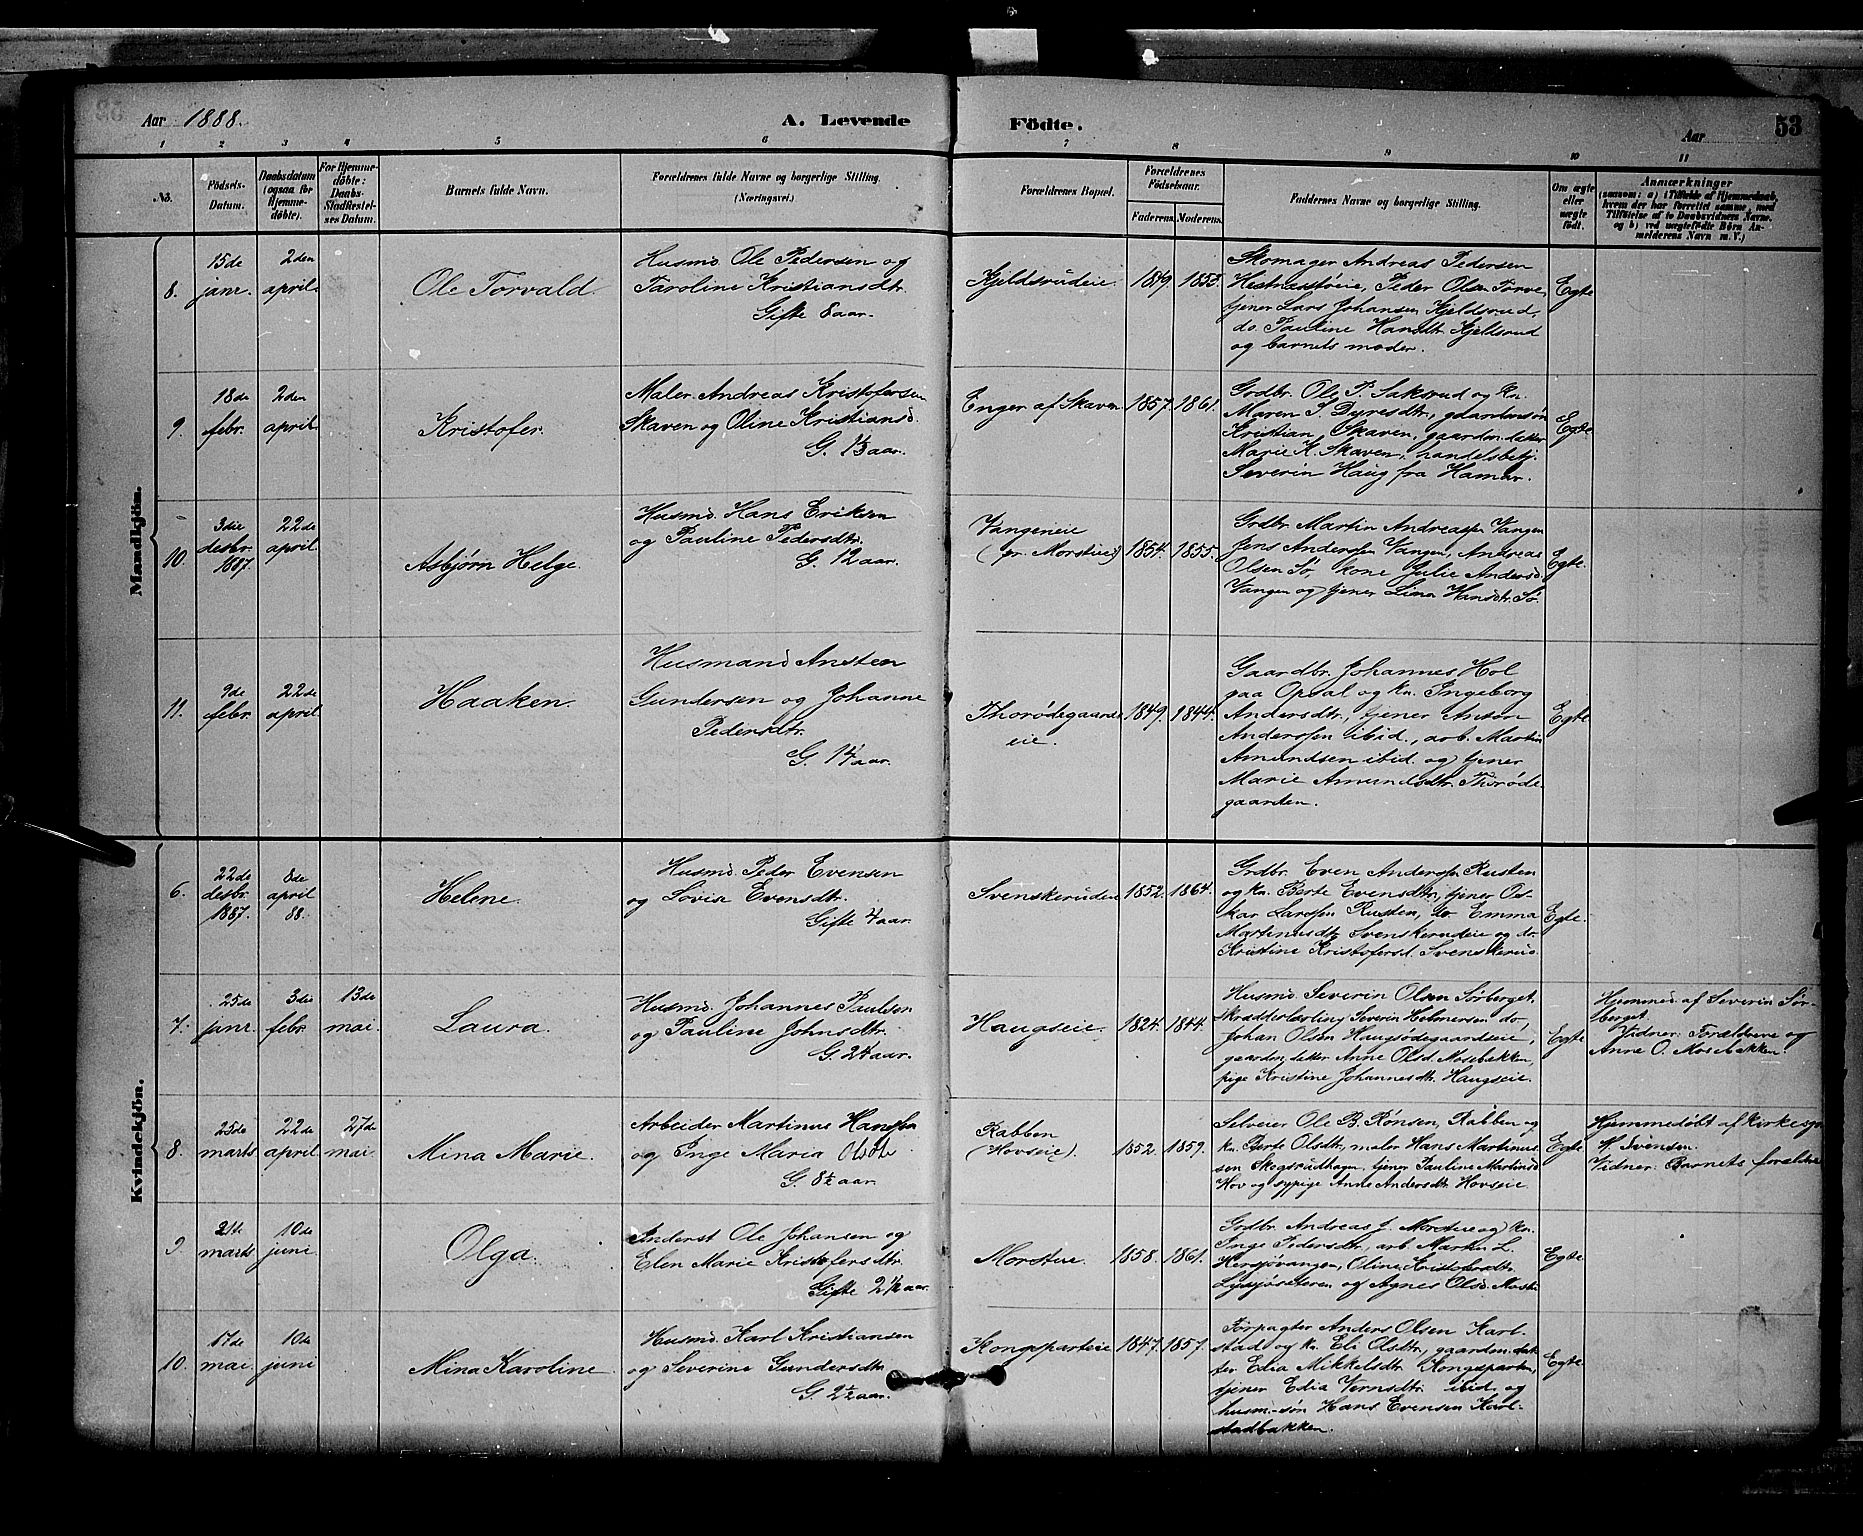 Aar 1888.
A. Levende
Födte.
Aar
53
1 2 3 4 5 6 7 8 9 10 11
No.
Födsels-
Datum.
Daabsdatum
(ogsaa for
Hjemme-
döbte).
For Hjemme-
döbte:
Daabs-
Stadfæstel-
ses Datum.
Barnets fulde Navn.
Forældrenes fulde Navne og borgerlige Stilling.
(Næringsvei.)
Forældrenes Bopæl.
Forældrenes
Födselsaar.
Faderens.
Moderens.
Faddernes Navne og borgerlige Stilling.
Om ægte
eller
uægte
födt.
Anmærkninger
(saasom: a) i Tilfælde af Hjemmedaab,
hvem der har forrettet samme, med
Tilföielse af to Daabsvidners Navne,
og b) ved uægtefödte Börn An-
melderens Navn m. V.)
Mandkjön.
8.
15de
janr.
2den
april.
Ole Torvald.
Husmd. Ole Pedersen og
Karoline Kristiansdtr.
Gifte 8 aar.
Kjeldsrudeie.
1849
1853.
Skomager Andreas Pedersen
Hestnæsstøeie, Peder Olsen
tjener Lars Johansen Kjeldsrud,
do. Pauline Hansdtr. Kjeldsrud
og barnets moder.
Egte
9.
18de
febr.
2den
april.
Kristofer.
Maler Andreas Kristofersen
Skaven og Oline Kristiansd.
Enger af Skaven
1857.
1861.
Grdbr. Ole P. Saksrud og kn.
Maren S. Dyresdtr., gaardmsøn
Kristian Skaven, gaardm. datter
Marie K. Skaven, handelsbetj.
Severin Haug fra Hamar.
Egte
10.
3die
desbr.
1887.
22de
april
Asbjørn Helge.
Husmd. Hans Eriksen
og Pauline Pedersdtr.
G. 12 aar.
Vangeneie
1854.
1855.
Grdbr. Martin Andreass. Vangen
Jens Anderssen Vangen, Andreas
Olsen Sø, kone Julie Andersd.
Vangen og tjener Lina Hansdtr. Sø.
Egte.
11.
9de
febr.
22de
april
Haaken.
Husmand Ansten
Gundersen og Johanne
Pedersdtr.
G. 14 aar.
Thorødegaards
eie.
1849.
1844.
Gaardbr. Johannes Hol
gaa Opsal og kn. Ingeborg
Andersdtr., tjener Anton
Anderssen ibid., arb. Martin
Amundsen ibid. og tjener
Marie Amundsdtr. Thorøde-
gaarden.
Egte
Kvindekjön.
6.
22de
desbr.
1887.
8de
april
88.
Helene.
Husmd. Peder Evensen
og Lovise Evensdtr.
Gifte 4 aar.
Svenskeruden
1852.
1864.
Grdbr. Even Anderssen Rusten
og kn. Berte Evensdtr., tjener Os-
kar Larssen Rusten, do Emma
Martinusdtr. Svenskerudeie og do.
Kristine Kristofersd. Svenskerud
Egte.
7.
25de
janr.
3die
febr.
13de
mai.
Laura.
Husmd. Johannes Paulsen
og Pauline Johnsdtr.
G. 24 aar.
Haugseie.
1824.
1844.
Husmd. Severin Olsen Sørberget,
skrædderlærling Severin Helmersen do,
Johan Olsen Haugsødegaardseie,
gaardm. datter Anne Olsd. Mosebakken,
pige Kristine Johannesdtr. Haugseie.
Egte
Hjemmed. af Severin Sør-
berget.
Vidner: Forældrene og
Anne O. Mosebakken.
8.
25de
marts
22de
april
27de
mai.
Mina Marie.
Arbeider Martinus Hanssen
og Inge Maria Olsdtr.
G. 8½ aar.
Rabben
(Hovseie).
1852.
1859.
Selveier Ole B. Rønsen, Rabben og
kn. Berte Olsdtr., maler Hans Martinus-
sen Skogsrudhagen, tjener Pauline Martinsd.
Hov og sypige Anne Andersdtr. Hovseie.
Egte
Hjemmedøbt af kirkesgr.
H. Svensen.
Vidner: Barnets forældre
9.
21de
marts
10de
juni
Olga.
Inderst Ole Johansen og
Elen Marie Kristofersdtr.
Gifte 2½ aar.
Morstue.
1858.
1861.
Grdbr. Andreas J. Morstue og kn.
Inge Pedersdtr., arb. Martin L.
Hersjøvangen, Oline Kristofersdtr.
Lysjøseteren og Agnes Olsd. Morstu
Egte
10.
17de
mai.
10de
juni
Mina Karoline
Husmd. Karl Kristiansen
og Severine Gundersdtr.
G. 2½ aar.
Kongsparteie
1847.
1857.
Forpagter Anders Olsen Karl-
stad og kn. Eli Olsdtr., gaardm. dat-
ter Edia Mikkelsdtr. Kongsparten,
tjener Edia Vernsdtr. ibid. og
husm.-søn Hans Evensen Karl-
stadbakken.
Egte